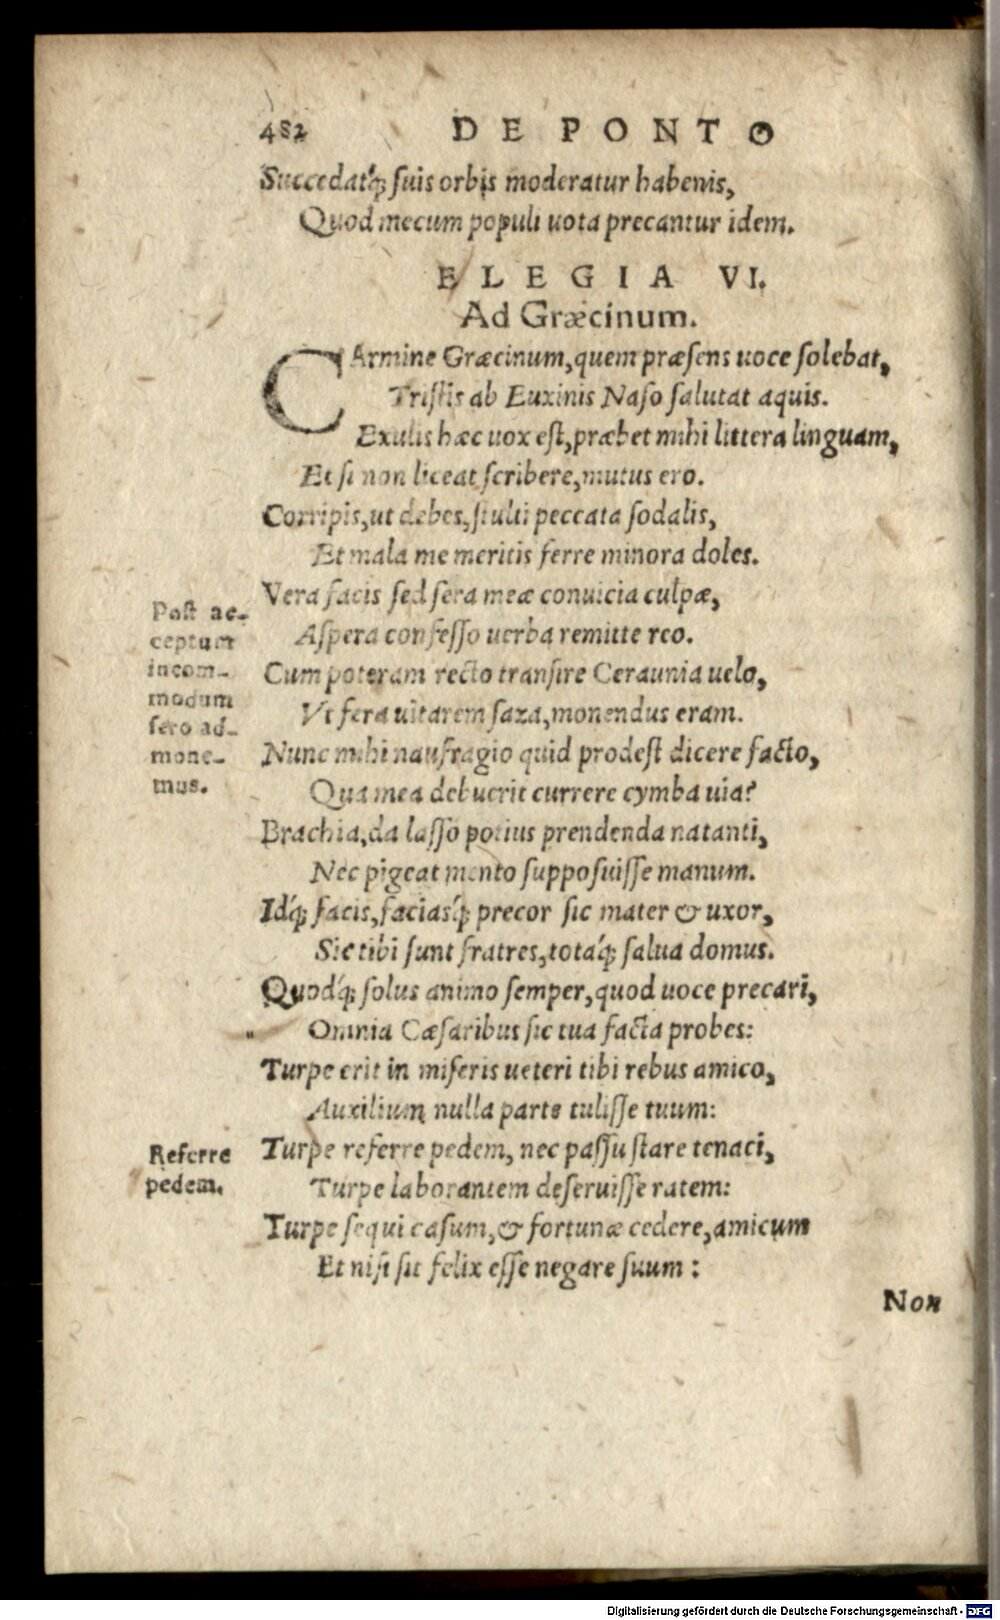 482 DE PONTO
Succedatq́; suis orbis moderatur habenis,
Quod mecum populi uota precantur idem.
ELEGIA VI.
Ad Græcinum.
CArmine Græcinum, quem præsens uoce solebat,
Tristis ab Euxinis Naso salutat aquis.
Exulis hæc uox est, præbet mihi littera linguam,
Et si non liceat scribere, mutus ero.
Corripis, ut debes, stulti peccata sodalis,
Et mala me meritis ferre minora doles.
Vera facis sed sera meæ conuicia culpæ,
Aspera confesso uerba remitte reo.
Cum poteram recto transire Ceraunia uelo,
Vt fera uitarem saxa, monendus eram.
Nunc mihi naufragio quid prodest dicere facto,
Qua mea debuerit currere cymba uia?
Brachia, da lasso potius prendenda natanti,
Nec pigeat mento supposuisse manum.
Idq́; facis, faciasq́; precor sic mater & uxor,
Sic tibi sunt fratres, totaq́; salua domus.
Quodq́; solus animo semper, quod uoce precari,
" Omnia Cæsaribus sic tua facta probes:
Turpe erit in miseris ueteri tibi rebus amico,
Auxilium nulla parte tulisse tuum:
Turpe referre pedem, nec passu stare tenaci,
Turpe laborantem deseruisse ratem:
Turpe sequi casum, & fortunæ cedere, amicum
Et nisi sit felix esse negare suum:
Non
Post ac-
ceptum
incom-
modum
sero ad-
mone-
mus.
Referre
pedem.
Digitalisierung gefördert durch die Deutsche Forschungsgemeinschaft - DFG